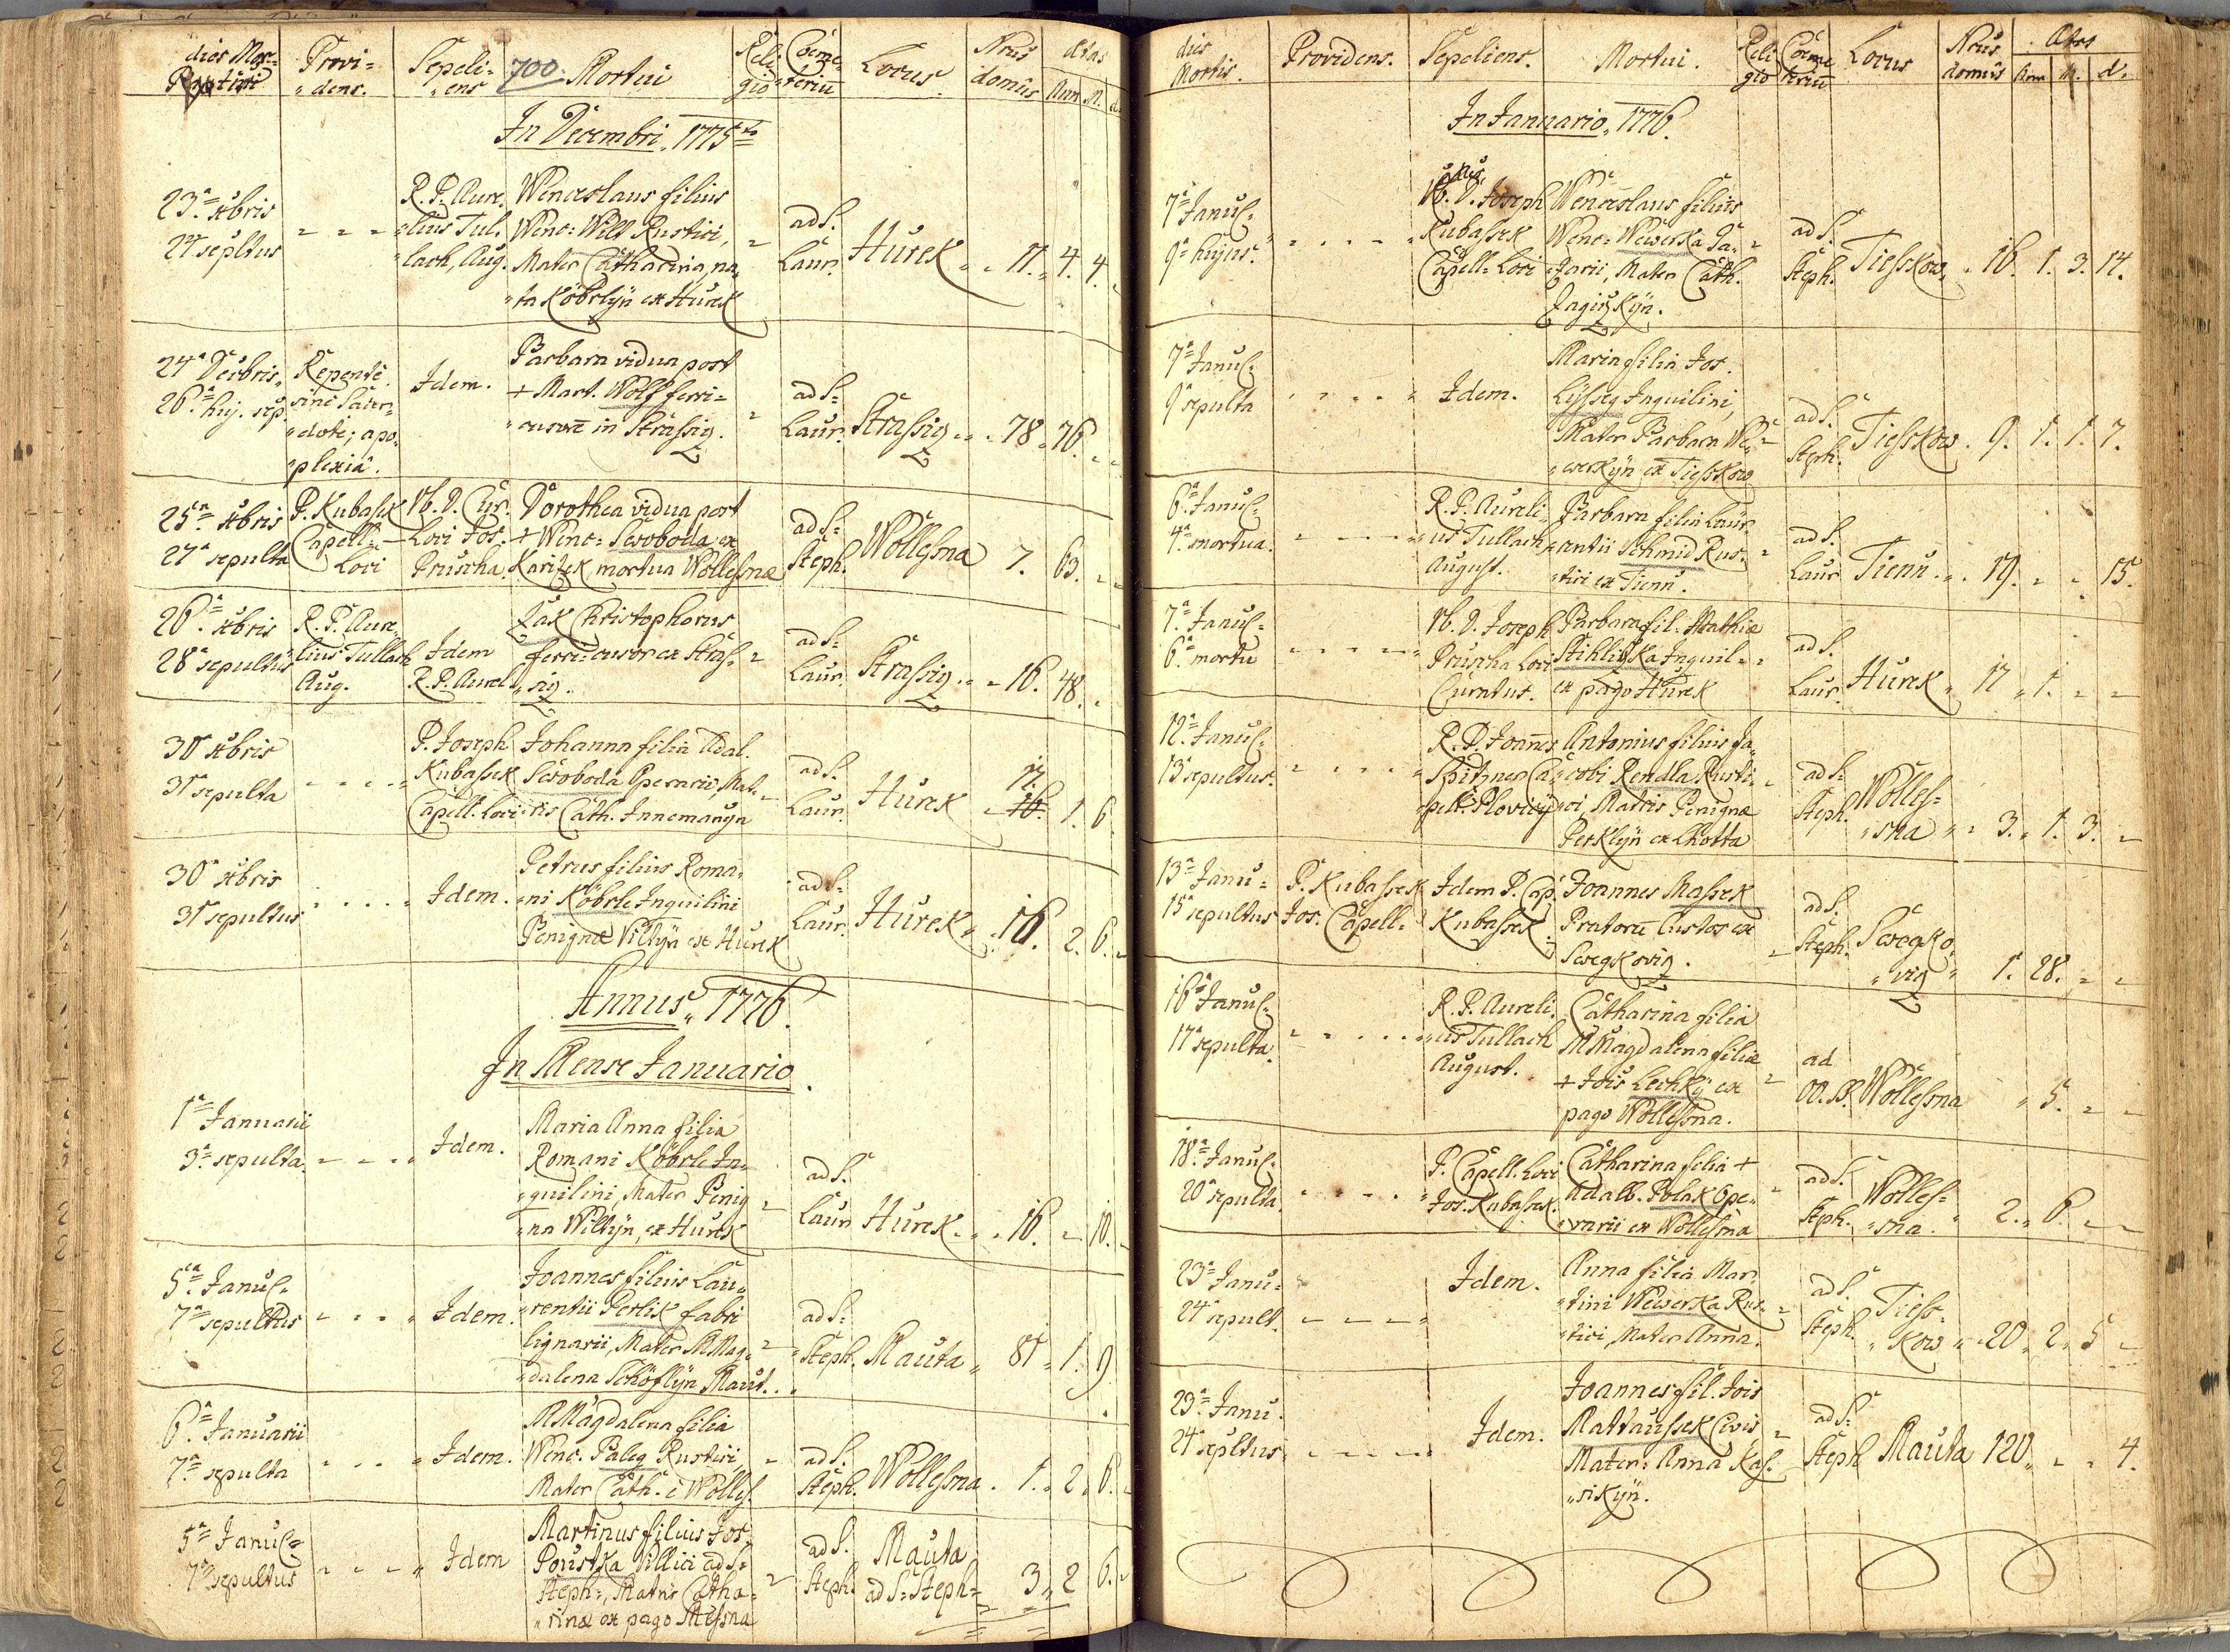 dies Mor= Provi= Sepeli= 700. Mortui Reli Cœme Locus. Nrus ætas
"dens. "ens gio teriū domûs Ann. M. d.
In Decembri. 1775to
23.a xbris
24 sepltus
R. P. Aure.
"lius Tul.
"lach, Aug.
Wenceslaus filius
Wenc: Wilt Rustici,
Mater Catharina, na
"ta Köbrlyn ex Hurek
ad S.
Laur.
Hurek 11. 4. 4.
24a Decbris.
26.a huj. sep.
Repentè
sine Sacer=
"dote; apo
"plexiâ.
Idem.
Barbara vidua post
+ Mart. Wolf ferri=
in Strassig.
ad S=
Laur.
Strassig 78 76.
25.a xbris
27a sepulta
P. Kubassek
Capell=
Loci
Vb. D. Cur.
Loci Jos.
Pruscha.
Dorothea vidua post
+ Wenc= Swoboda ex
Karizek mortua Wollessnæ
ad S=
Steph.
Wollessna 7. 63.
26.a xbris
28a sepultus
R. P. Aure
"lius Tullach
Aug.
Idem
R. P. Aurel
Žak Christophorus
ferri=cusor ex Stras=
"sig.
ad S=
Laur.
Strassig 16. 48.
30a xbris
31a sepulta
P. Joseph
Kubassek
Capell. Loci
Johanna filia Adal.
Swoboda Operarii, Mat=
"ris Cath. Innemanyn
ad S.
Laur.
Hurek 17. 16. 1. 6.
30a xbris
31a sepultus
Idem.
Petrus filius Roma.
"ni Köbrle Inquilini
Benignæ Viltÿn ex Hurek
ad S=
Laur.
Hurek 16. 2. 6.
Annus 1776.
In Mense Januario.
1a Januarii
3.a sepulta.
Idem.
Maria Anna filia
Romani Köbrle In=
"quilini, Mater Benig
"na Wiltÿn, ex Hurek
ad S.
Laur.
Hurek 16. 10.
5.a Janu=
7a sepultus
Idem.
Joannes filius Lau
"rentii Perlik fabri
lignarii, Mater M Mag=
"dalena Schöflÿn Maut.
ad S=
Steph.
Mauta 81 1. 9.
6.a Januarii
7a sepulta
Idem.
M Magdalena filia
Wenc. Paleg Rustici,
Mater Cath. è Wolles.
ad S.
Steph.
Wollessna. 1. 2. 6.
5.a Janu=
7a sepultus
Idem
Martinus filius Jos.
Poustka Villici ad S=
Steph=, Matris Catha=
"rinæ ex pago Messna
ad S.
Steph.
Mauta
ad S= Steph= 3 2 6.
dies Providens. Sepeliens. Mortui. Reli Cœme Locus Nrus Ætas
Mortis. gio teriū domûs Ann M. d.
In Januario. 1776.
7a Janu=
9a hujus.
Vb. D. Joseph
Kubassek
Capell= Loci
Wenceslaus filius
Wenc= Wewerka Fa=
"arii, Mater Cath.
Zagiczkÿn.
ad S.
Steph.
Tiesskow 16. 1. 3. 14.
7a Janu=
9a sepulta
Idem.
Maria filia Jos.
Lÿsseg Inquilini,
Mater Barbara We=
"werkÿn ex Tiesskow
ad S.
Steph.
Tiesskow. 9. 1. 1. 7.
6.a Janu=
4.a mortua.
R. P. Aureli
"us Tullach
August.
Barbara filia Laur
"entii Schmid Rus=
"tici ex Tienn.
ad S.
Laur
Tienn. 19. 15.
7.a Janu=
6.a mortu
Vb. D. Joseph
Pruscha Loci
Curatus.
Barbara fil. Mathiæ
Stihliczka Inquil=
ex pago Hurek
ad S.
Laur.
Hurek 17 1.
12.a Janu=
13a sepultus.
R. D. Joannes
Spitzner Ca
"pell. Ploviy
Antonius filius Ja
"cobi Rendla Rusti=
"ci, Matris Benignæ
Perklÿn ex Lhotta
ad S=
Steph.
Wolles=
"sna 3. 1. 3.
13a Janu=
15a sepultus
P. Kubassek
Jos. Capell=
Idem P. Cap.
Kubassek
Joannes Massek
Pratorū Custos ex
Swegkoviz.
ad S.
Steph.
Swegko
"viz 1. 28.
16.a Janu=
17a sepulta.
R. P. Aureli.
"us Tullach
August.
Catharina filia
M Magdalena filiæ
+ Jois Lechkÿ ex
pago Wollessna.
ad
OO. SS.
Wollessna 5.
18.a Janu=
20a sepulta
P. Capell. Loci
Jos. Kubassek.
Catharina filia +
Adalb. Polak Ope=
"rarii ex Wollessna
ad S.
Steph.
Wolles=
"sna. 2. 6.
23a Janu=
24a sepult.
Idem.
Anna filia Mar=
"tini Wewerka Rus=
"tici, Mater Anna.
ad S.
Steph.
Tiess=
"kow 20 2 5
23.a Janu.
24a sepltus
Idem.
Joannes fil. Jois
Mattaussek Civis
Mater= Anna Kas=
"sikÿn.
ad S=
Steph
Mauta 120 4.